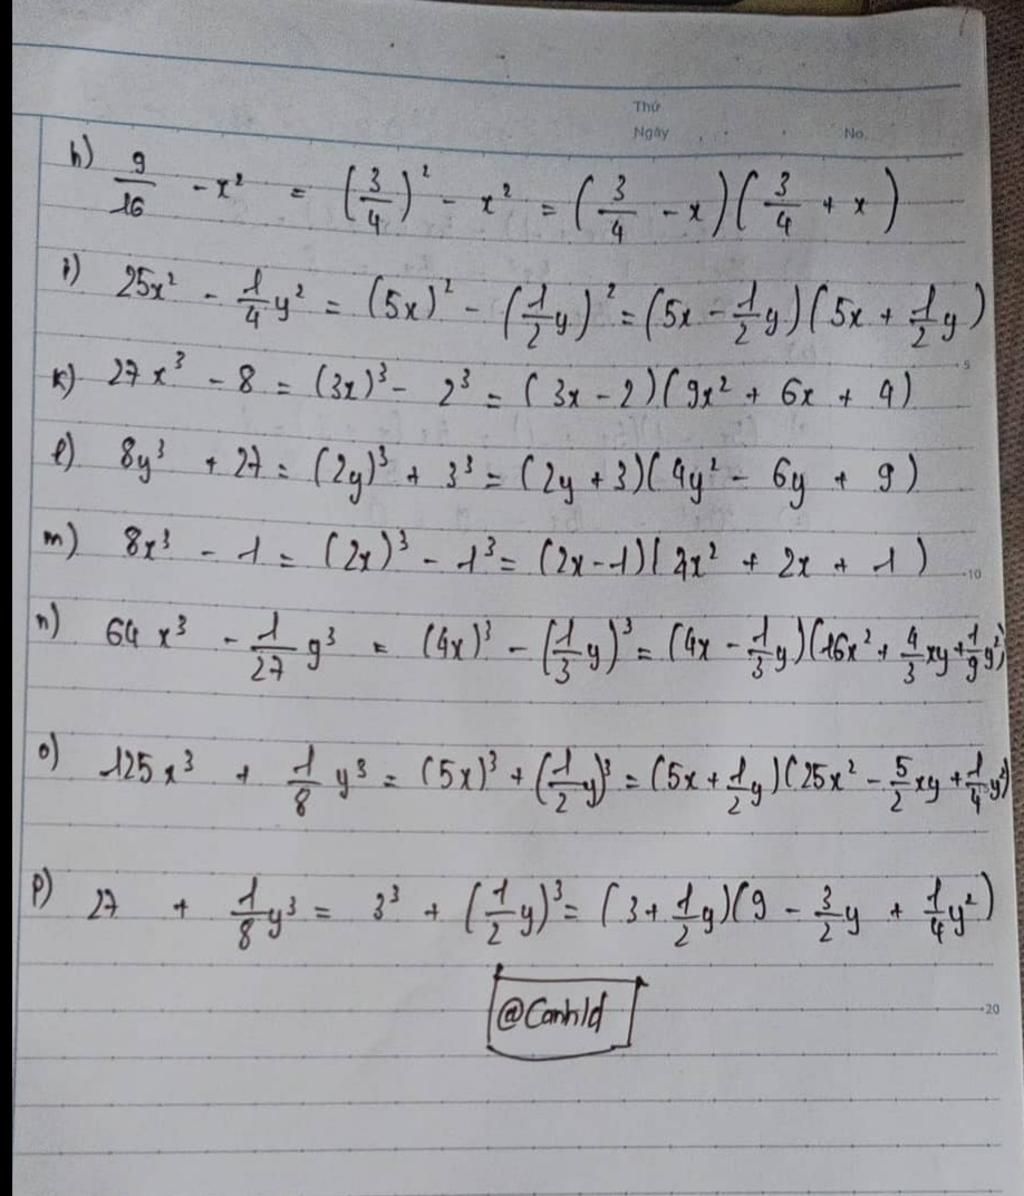 Thứ
Ngày
No.
h) 9/16 - x² = (3/4)² - x² = (3/4 - x)(3/4 + x)
i) 25x² - 1/4y² = (5x)² - (1/2y)² = (5x - 1/2y)(5x + 1/2y)
5
k) 27x³ - 8 = (3x)³ - 2³ = (3x - 2)(9x² + 6x + 4)
l) 8y³ + 27 = (2y)³ + 3³ = (2y + 3)(4y² - 6y + 9)
m) 8x³ - 1 = (2x)³ - 1³ = (2x - 1)(4x² + 2x + 1)
10
n) 64x³ - 1/27y³ = (4x)³ - (1/3y)³ = (4x - 1/3y)(16x² + 4/3xy + 1/9y²)
o) 125x³ + 1/8y³ = (5x)³ + (1/2y)³ = (5x + 1/2y)(25x² - 5/2xy + 1/4y²)
p) 27 + 1/8y³ = 3³ + (1/2y)³ = (3 + 1/2y)(9 - 3/2y + 1/4y²)
@Canhld
20